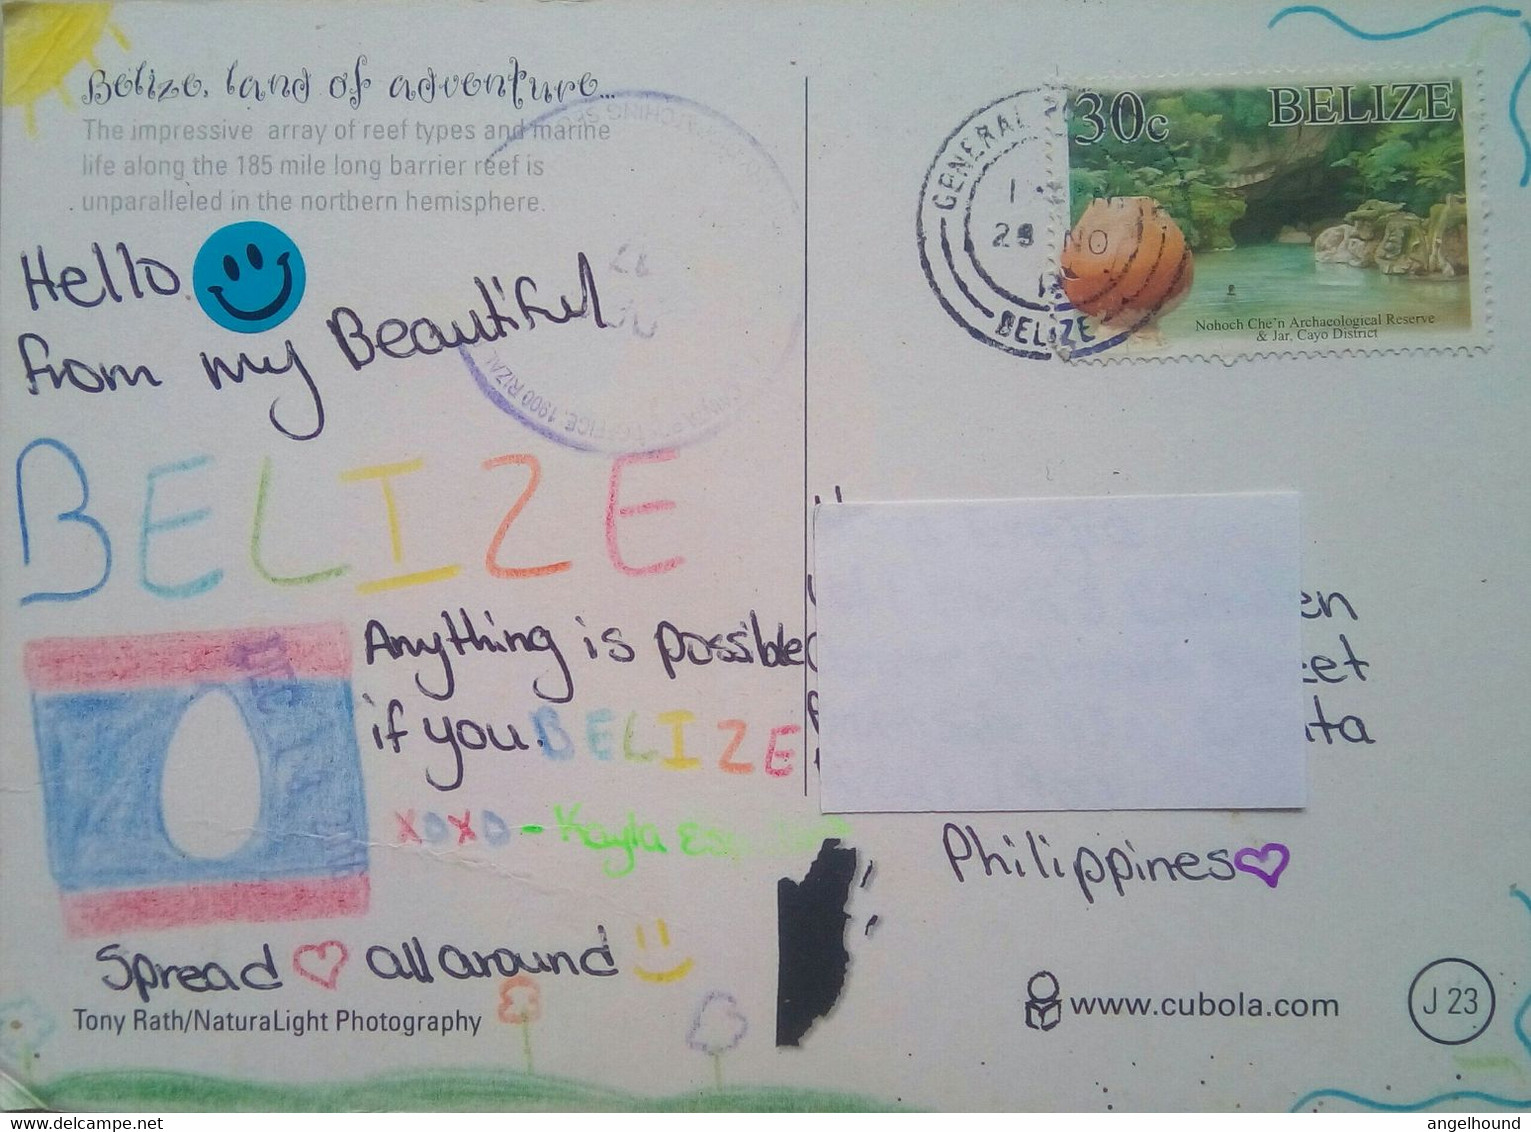 Belize, land of adventure...
The impressive array of reef types and marine
life along the 185 mile long barrier reef is
unparalleled in the northern hemisphere.
Hello
from my Beautiful
BELIZE
Anything is possible
if you BELIZE
XOXO - Kayla
Spread all around
Tony Rath/NaturaLight Photography
GENERAL
28 NO
BELIZE
30c BELIZE
Nohoch Che'n Archaeological Reserve
& Jar, Cayo District
OFFICE, 1900 RIZAL
DEC
en
eet
ta
Philippines
www.cubola.com
J 23
delcampe.net
angelhound